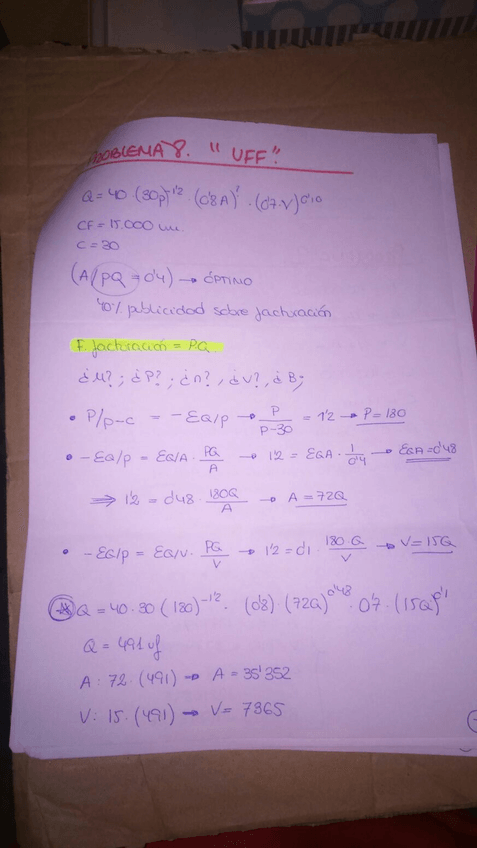 PROBLEMA 8. "UFF".
Q = 40 (30p)^-1'2 · (0'8A)^' · (0'7·V)^0'10
CF = 15.000 um.
C = 30
(A/PQ = 0'4) → ÓPTIMO
40% publicidad sobre facturación
F. facturación = P.Q.
¿M?; ¿P?; ¿n?, ¿V?, ¿B;
• P/p-c = -EQ/p → P/P-30 = 1'2 → P = 180
• -EQ/p = EQ/A · PQ/A → 1'2 = EQA · 1/0'4 → EQA = 0'48
⇒ 1'2 = 0'48 · 180Q/A → A = 72Q
• -EQ/p = EQ/V · PQ/V → 1'2 = 0'1 · 180·Q/V → V = 15Q
* Q = 40·30 (180)^-1'2 · (0'8)·(72Q)^0'48 · 0'7·(15Q)^0'1
Q = 491 uf
A: 72·(491) → A = 35'352
V: 15·(491) → V = 7365